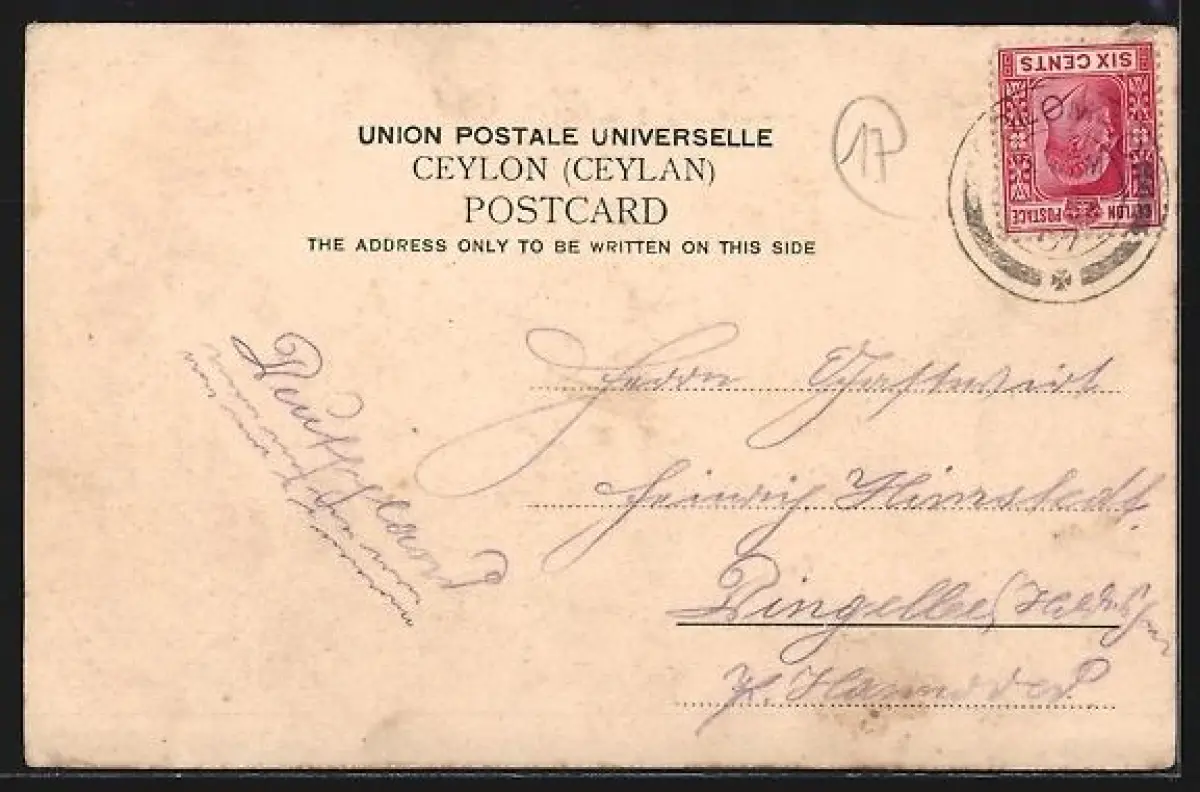 UNION POSTALE UNIVERSELLE
CEYLON (CEYLAN)
POSTCARD
THE ADDRESS ONLY TO BE WRITTEN ON THIS SIDE
17
SIX CENTS
CEYLON POSTAGE
Herrn Gastwirt
Heinrich Himstedt
Dingelbe
Hannover
Deutschland